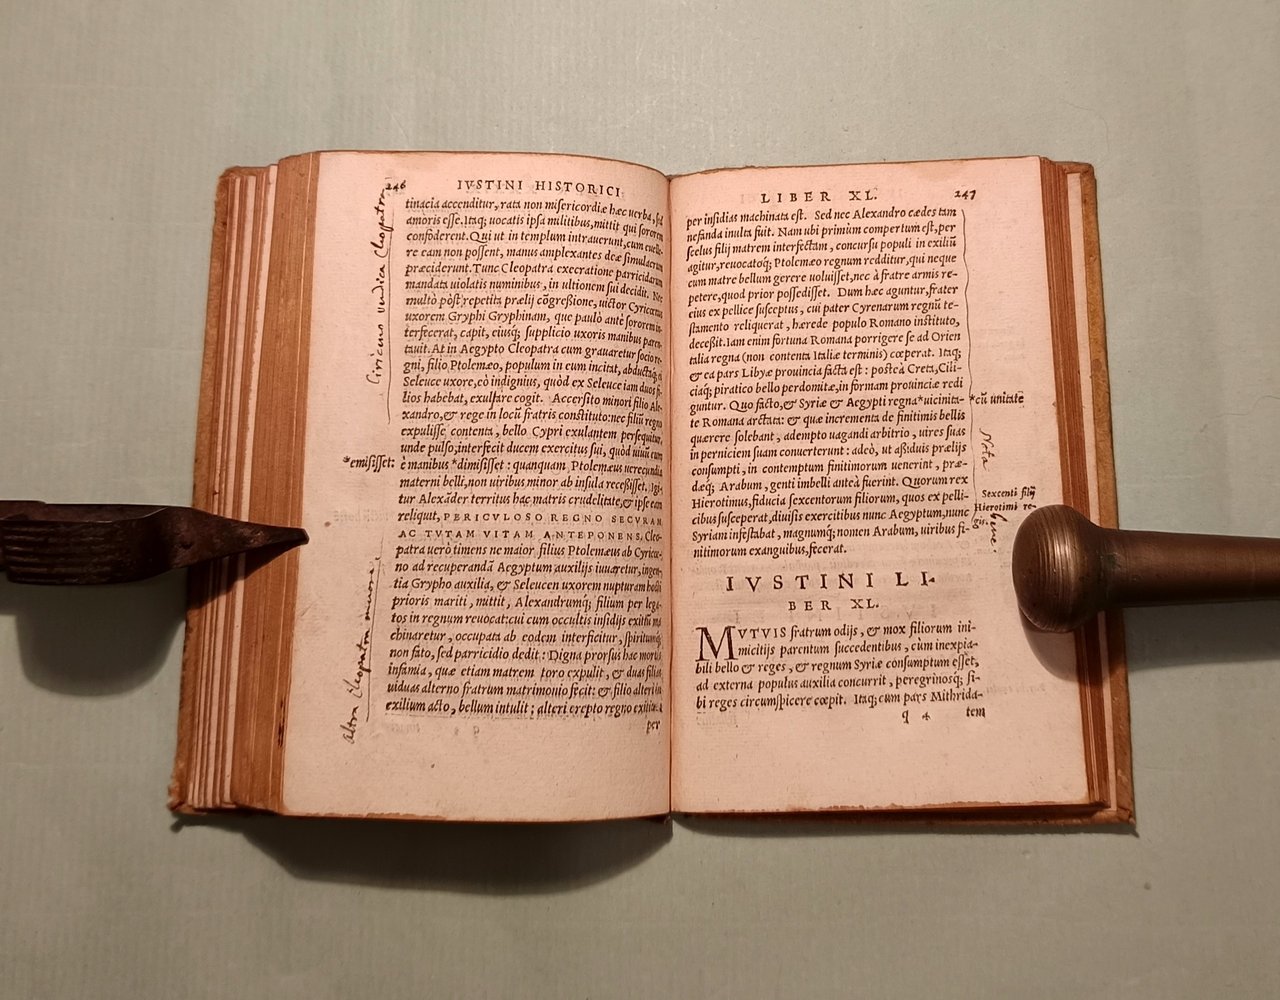 246 IVSTINI HISTORICI
tinacia accenditur, rata non misericordiæ hæc uerba, sed
amoris esse. Itaq; uocatis ipsa militibus, mittit qui sororem
confoderent. Qui ut in templum intrauerunt, cum euelle-
re eam non possent, manus amplexantes deæ simulacrum
præciderunt. Tunc Cleopatra execratione parricidarum
mandata uiolatis numinibus, in ultionem sui decidit. Nec
multò pòst repetita prælij cōgreßione, uictor Cyricænus
uxorem Gryphi Gryphinam, que paulò antè sororem in-
terfecerat, capit, eiusq; supplicio uxoris manibus paren-
tauit. At in Aegypto Cleopatra cum grauaretur socio re-
gni, filio Ptolemæo, populum in eum incitat, abductaq; ei
Seleuce uxore, eò indignius, quòd ex Seleuce iam duos fi-
lios habebat, exulare cogit. Accersito minori filio Ale-
xandro, & rege in locū fratris constituto: nec filiū regno
expulisse contenta, bello Cypri exulantem persequitur,
unde pulso, interfecit ducem exercitus sui, quòd uiuū eum
è manibus *dimisisset: quanquam Ptolemæus uerecundia
materni belli, non uiribus minor ab insula receßisset. Igi-
tur Alexāder territus hac matris crudelitate, & ipse eam
reliquit, PERICVLOSO REGNO SECVRAM
AC TVTAM VITAM ANTEPONENS. Cleo-
patra uerò timens ne maior filius Ptolemæus ab Cyricæ-
no ad recuperandā Aegyptum auxilijs iuuaretur, ingen-
tia Grypho auxilia, & Seleucen uxorem nupturam hosti
prioris mariti, mittit, Alexandrumq; filium per lega-
tos in regnum reuocat: cui cum occultis insidijs exitiū ma
chinaretur, occupata ab eodem interficitur, spiritumq;
non fato, sed parricidio dedit: Digna prorsus hac mortis
infamia, quæ etiam matrem toro expulit, & duas filias
uiduas alterno fratrum matrimonio fecit: & filio alteri in
exilium acto, bellum intulit; alteri erepto regno exitium
per
*emisisset:
Ciriceno vendica Cleopatra
altra Cleopatra minore
LIBER XL. 247
per insidias machinata est. Sed nec Alexandro cædes tam
nefanda inulta fuit. Nam ubi primum compertum est, per
scelus filij matrem interfectam, concursu populi in exiliū
agitur, reuocatoq; Ptolemæo regnum redditur, qui neque
cum matre bellum gerere uoluisset, nec à fratre armis re-
petere, quod prior possedisset. Dum hæc aguntur, frater
eius ex pellice susceptus, cui pater Cyrenarum regnū te-
stamento reliquerat, hærede populo Romano instituto,
decessit. Iam enim fortuna Romana porrigere se ad Orien
talia regna (non contenta Italiæ terminis) cœperat. Itaq;
& ea pars Libyæ prouincia facta est: posteà Creta, Cili-
ciaq; piratico bello perdomitæ, in formam prouinciæ redi
guntur. Quo facto, & Syriæ & Aegypti regna *uicinita-
te Romana arctata: & quæ incrementa de finitimis bellis
quærere solebant, adempto uagandi arbitrio, uires suas
in perniciem suam conuerterunt: adeò, ut aßiduis prælijs
consumpti, in contemptum finitimorum uenerint, præ-
dæq; Arabum, genti imbelli anteà fuerint. Quorum rex
Hierotimus, fiducia sexcentorum filiorum, quos ex pelli-
cibus susceperat, diuisis exercitibus nunc Aegyptum, nunc
Syriam infestabat, magnumq; nomen Arabum, uiribus fi-
nitimorum exanguibus, fecerat.
*cū unitate
Nota
Sexcenti filij
Hierotimi re-
gis.
IVSTINI LI-
BER XL.
MVTVIS fratrum odijs, & mox filiorum ini-
micitijs parentum succedentibus, cùm inexpia-
bili bello & reges, & regnum Syriæ consumptum esset,
ad externa populus auxilia concurrit, peregrinosq; si-
bi reges circumspicere cœpit. Itaq; cum pars Mithrida-
q 4 tem